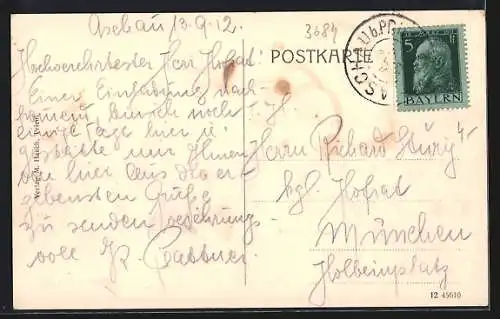 Aschau 13.9.12.
3684
POSTKARTE
ASCHAU b. PR
5
BAYERN
Hochverehrtester Herr Hofrat!
Einer Einladung nach-
noch
einige Tage hier u.
gestatte mir Ihnen
von hier aus die er-
gebensten Grüße
zu senden
voll
Herrn Richard
kgl. Hofrat
München
Holbeinplatz
Verlag M.
12 45610